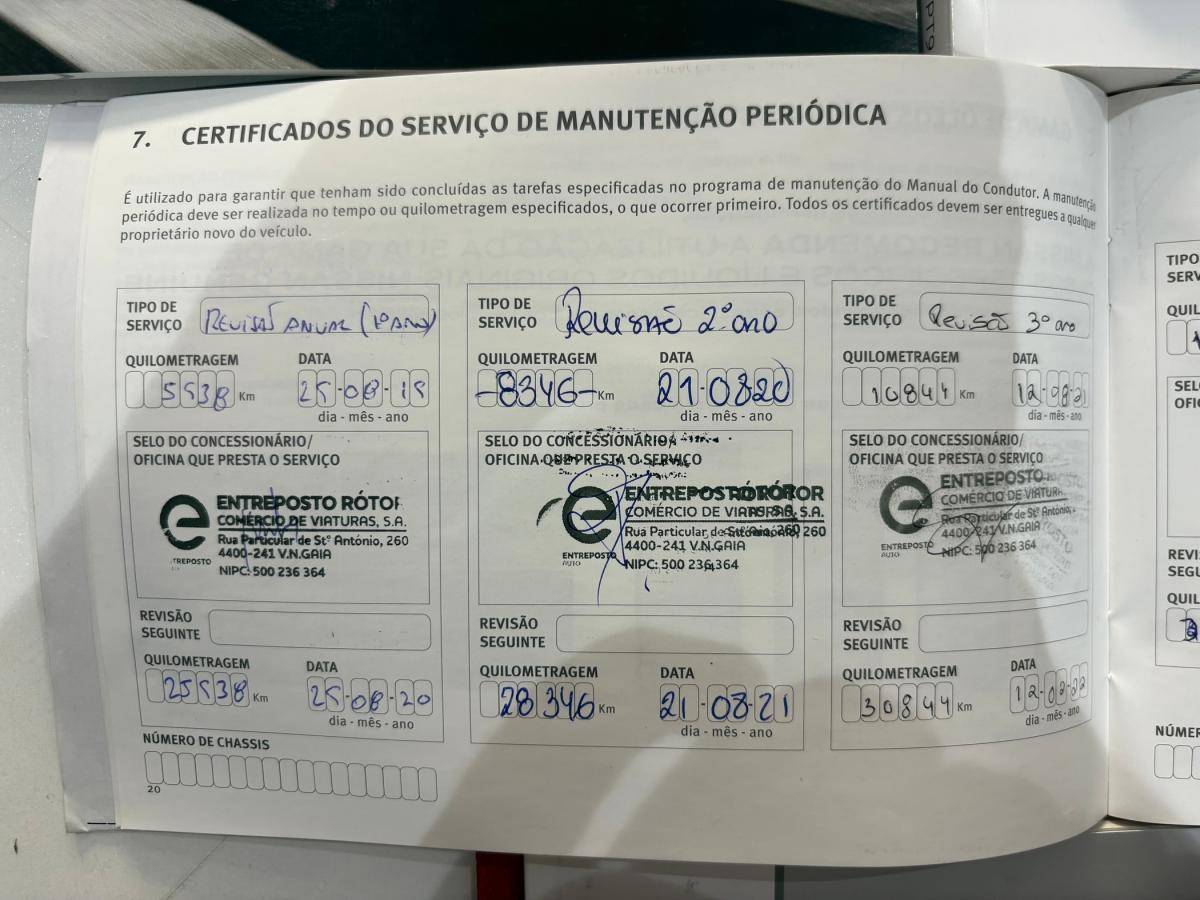 7. CERTIFICADOS DO SERVIÇO DE MANUTENÇÃO PERIÓDICA
É utilizado para garantir que tenham sido concluídas as tarefas especificadas no programa de manutenção do Manual do Condutor. A manutenção
periódica deve ser realizada no tempo ou quilometragem especificados, o que ocorrer primeiro. Todos os certificados devem ser entregues a qualquer
proprietário novo do veículo.
TIPO DE
SERVIÇO
REVISÃO ANUAL (1º ANO)
QUILOMETRAGEM DATA
5538 Km 25-08-19
dia - mês - ano
SELO DO CONCESSIONÁRIO/
OFICINA QUE PRESTA O SERVIÇO
ENTREPOSTO RÓTOR
COMÉRCIO DE VIATURAS, S.A.
Rua Particular de Stº António, 260
4400-241 V.N.GAIA
NIPC: 500 236 364
REVISÃO
SEGUINTE
QUILOMETRAGEM DATA
25538 Km 25-08-20
dia - mês - ano
NÚMERO DE CHASSIS
20
TIPO DE
SERVIÇO
Revisão 2º ano
QUILOMETRAGEM DATA
-8346- Km 21-0820
dia - mês - ano
SELO DO CONCESSIONÁRIO/
OFICINA QUE PRESTA O SERVIÇO
ENTREPOSTO RÓTOR
COMÉRCIO DE VIATURAS, S.A.
Rua Particular de Stº António, 260
4400-241 V.N.GAIA
NIPC: 500 236 364
ENTREPOSTO
AUTO
REVISÃO
SEGUINTE
QUILOMETRAGEM DATA
28346 Km 21-08-21
dia - mês - ano
TIPO DE
SERVIÇO
Revisão 3º ano
QUILOMETRAGEM DATA
10844 Km 12-08-21
dia - mês - ano
SELO DO CONCESSIONÁRIO/
OFICINA QUE PRESTA O SERVIÇO
ENTREPOSTO
COMÉRCIO DE VIATUR
Rua Particular de Stº António,
4400-241 V.N.GAIA
NIPC: 500 236 364
ENTREPOSTO
AUTO
REVISÃO
SEGUINTE
QUILOMETRAGEM DATA
30844 Km
dia - mês - ano